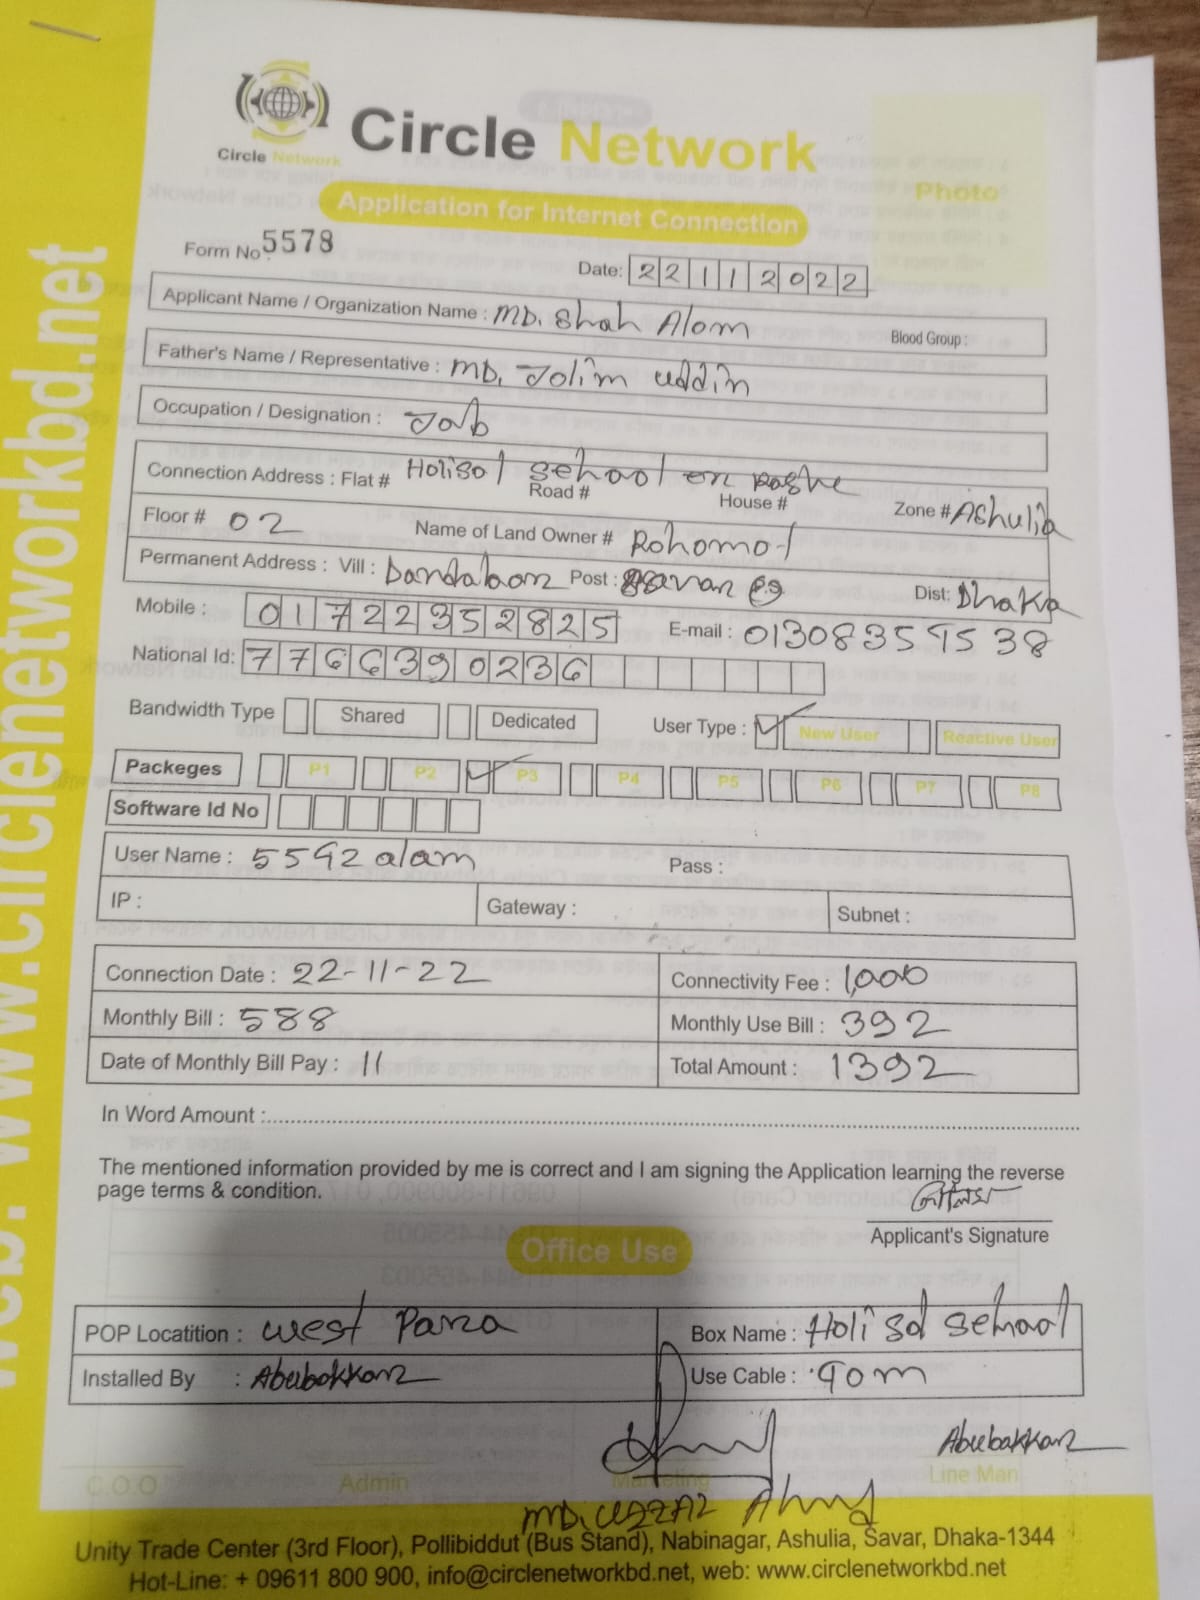 Circle Network
Circle Network
Photo
Application for Internet Connection
Form No. 5578
Date: 22112022
Applicant Name / Organization Name : MD. Shah Alom
Blood Group :
Father's Name / Representative : MD. Jolim uddin
Occupation / Designation : Job
Connection Address : Flat # Holisol school er pashe
Road # House # Zone # Ashulia
Floor # 02 Name of Land Owner # Rohomot
Permanent Address : Vill : Dandabor Post : Savar Dist: Dhaka
Mobile : 01722352825 E-mail : 01308359538
National Id: 7766390236
Bandwidth Type Shared Dedicated User Type : New User Reactive User
Packeges P1 P2 P3 P4 P5 P6 P7 P8
Software Id No
User Name : 5592alam Pass :
IP : Gateway : Subnet :
Connection Date : 22-11-22 Connectivity Fee : 1,000
Monthly Bill : 588 Monthly Use Bill : 392
Date of Monthly Bill Pay : 11 Total Amount : 1392
In Word Amount :
The mentioned information provided by me is correct and I am signing the Application learning the reverse
page terms & condition.
Applicant's Signature
Office Use
POP Locatition : West Para Box Name : Holi sol school
Installed By : Abubokkor Use Cable : 90m
Abubakkor
C.O.O Admin Marketing Line Man
MD. UZZAL Ahmed
Unity Trade Center (3rd Floor), Pollibiddut (Bus Stand), Nabinagar, Ashulia, Savar, Dhaka-1344
Hot-Line: + 09611 800 900, info@circlenetworkbd.net, web: www.circlenetworkbd.net
web: www.circlenetworkbd.net